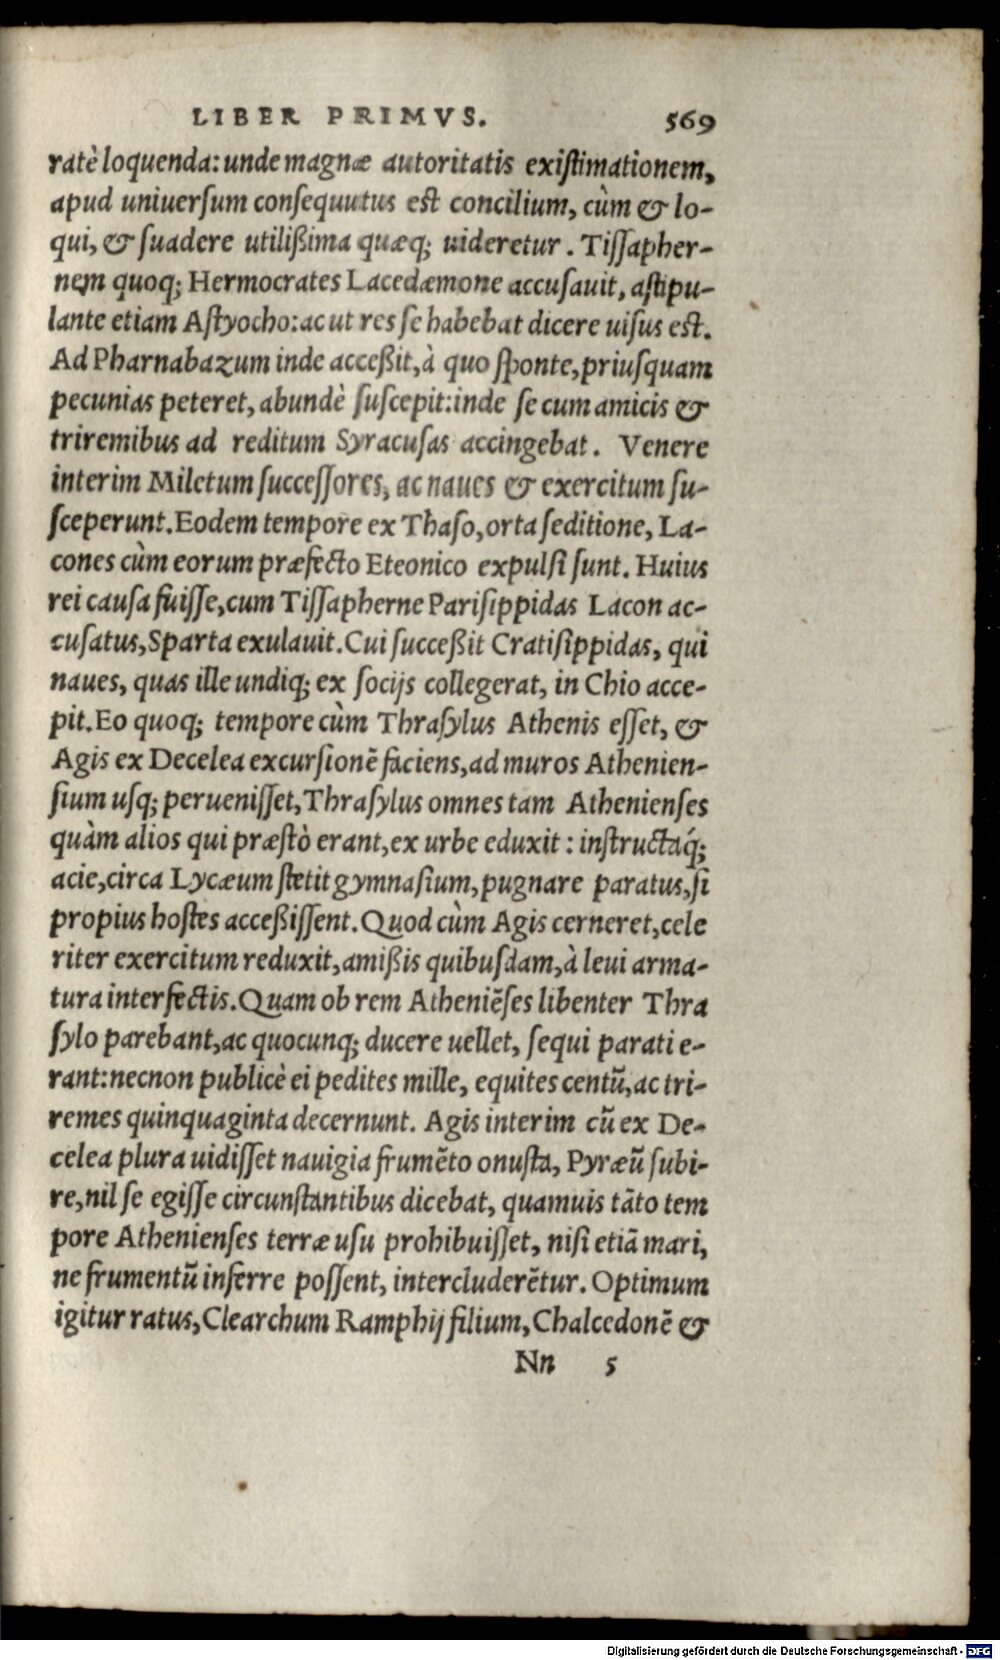 LIBER PRIMVS. 569
ratè loquenda: unde magnæ autoritatis existimationem,
apud uniuersum consequutus est concilium, cùm & lo-
qui, & suadere utilißima quæq; uideretur. Tissapher-
nem quoq; Hermocrates Lacedæmone accusauit, astipu-
lante etiam Astyocho: ac ut res se habebat dicere uisus est.
Ad Pharnabazum inde acceßit, à quo sponte, priusquam
pecunias peteret, abundè suscepit: inde se cum amicis &
triremibus ad reditum Syracusas accingebat. Venere
interim Miletum successores, ac naues & exercitum su-
sceperunt. Eodem tempore ex Thaso, orta seditione, La-
cones cùm eorum præfecto Eteonico expulsi sunt. Huius
rei causa fuisse, cum Tissapherne Parisippidas Lacon ac-
cusatus, Sparta exulauit. Cui succeßit Cratisippidas, qui
naues, quas ille undiq; ex socijs collegerat, in Chio acce-
pit. Eo quoq; tempore cùm Thrasylus Athenis esset, &
Agis ex Decelea excursionē faciens, ad muros Athenien-
sium usq; peruenisset, Thrasylus omnes tam Athenienses
quàm alios qui præstò erant, ex urbe eduxit: instructaq́;
acie, circa Lycæum stetit gymnasium, pugnare paratus, si
propius hostes acceßissent. Quod cùm Agis cerneret, cele
riter exercitum reduxit, amißis quibusdam, à leui arma-
tura interfectis. Quam ob rem Atheniēses libenter Thra
sylo parebant, ac quocunq; ducere uellet, sequi parati e-
rant: necnon publicè ei pedites mille, equites centū, ac tri-
remes quinquaginta decernunt. Agis interim cū ex De-
celea plura uidisset nauigia frumēto onusta, Pyræū subi-
re, nil se egisse circunstantibus dicebat, quamuis tāto tem
pore Athenienses terræ usu prohibuisset, nisi etiā mari,
ne frumentū inferre possent, intercluderētur. Optimum
igitur ratus, Clearchum Ramphij filium, Chalcedonē &
Nn 5
Digitalisierung gefördert durch die Deutsche Forschungsgemeinschaft - DFG